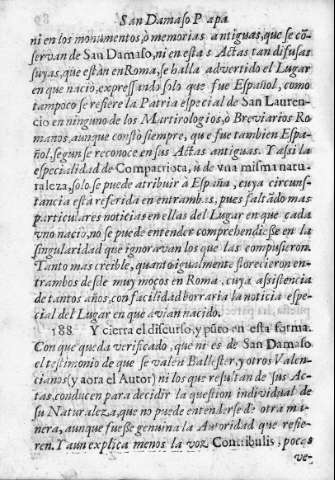 San Damaso Papa
ni en los monumentos, ò memorias antiguas, que se cõ-
servan de San Damaso, ni en estas Actas tan difusas
suyas, que estàn en Roma, se halla advertido el Lugar
en que nacio, expressando solo que fue Español, como
tampoco se refiere la Patria especial de San Lauren-
cio en ninguno de los Martirologios, ò Breviarios Ro-
manos, aunque constò siempre, que fue tambien Espa-
ñol, segun se reconoce en sus Actas antiguas. Y assi la
especialidad de Compatriota, ù de una misma natu-
raleza, solo se puede atribuir à España, cuya circuns-
tancia està referida en entrambas, pues faltãdo mas
particulares noticias en ellas del Lugar en que cada
vno nació, nò se puede entender comprehendiesse en la
singularidad que ignoravan los que las compusieron.
Tanto mas creible, quanto igualmente florecieron en-
trambos desde muy moços en Roma, cuya assistencia
de tantos años, con facilidad borraria la noticia espe-
cial del Lugar en que avian nacido.
188. Y cierra el discurso, y puto en esta forma.
Con que queda verificado, que ni es de San Damaso
el testimonio de que se valen Ballester, y otros Valen-
cianos (y aora el Autor) ni los que resultan de sus Ac-
tas, conducen para decidir la question individual de
su Naturaleza, que no puede entenderse de otra ma-
nera, aunque fuesse genuina la Autoridad que refie-
ren. Y aun explica menos la voz Contribulis; pocos
ve-